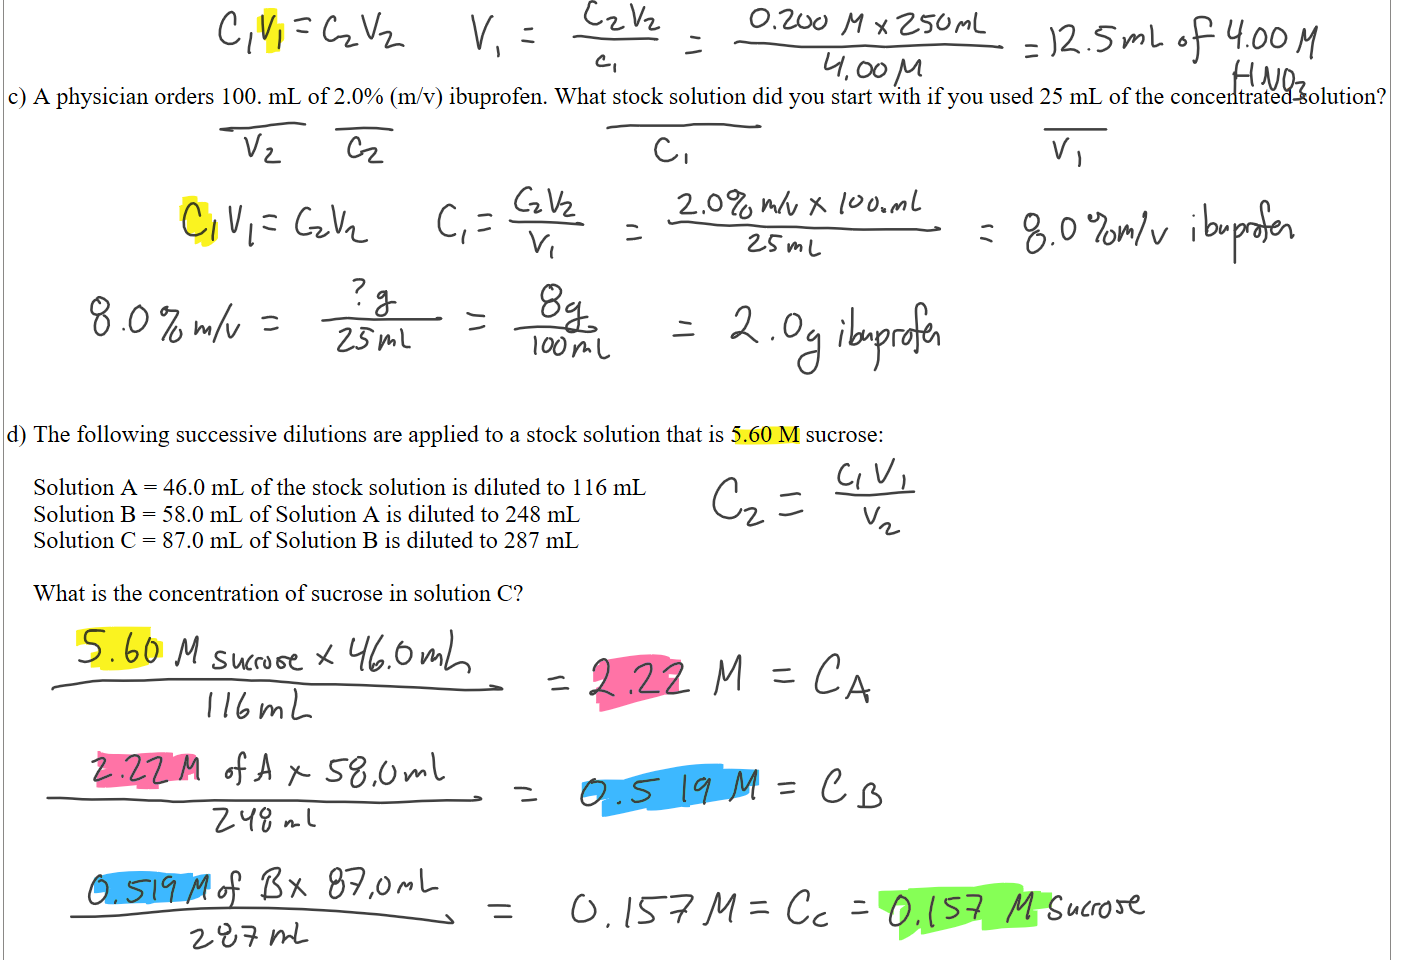 C₁V₁ = C₂V₂ V₁ = C₂V₂ / C₁ = 0.200 M x 250mL / 4.00 M = 12.5 mL of 4.00 M HNO₃
c) A physician orders 100. mL of 2.0% (m/v) ibuprofen. What stock solution did you start with if you used 25 mL of the concentrated solution?
V₂ C₂ C₁ V₁
C₁V₁ = C₂V₂ C₁ = C₂V₂ / V₁ = 2.0% m/v x 100.mL / 25 mL = 8.0 % m/v ibuprofen
8.0% m/v = ? g / 25 mL = 8g / 100 mL = 2.0g ibuprofen
d) The following successive dilutions are applied to a stock solution that is 5.60 M sucrose:
Solution A = 46.0 mL of the stock solution is diluted to 116 mL
Solution B = 58.0 mL of Solution A is diluted to 248 mL
Solution C = 87.0 mL of Solution B is diluted to 287 mL
C₂ = C₁V₁ / V₂
What is the concentration of sucrose in solution C?
5.60 M sucrose x 46.0 mL / 116 mL = 2.22 M = C_A
2.22 M of A x 58.0 mL / 248 mL = 0.519 M = C_B
0.519 M of B x 87.0 mL / 287 mL = 0.157 M = C_C = 0.157 M sucrose